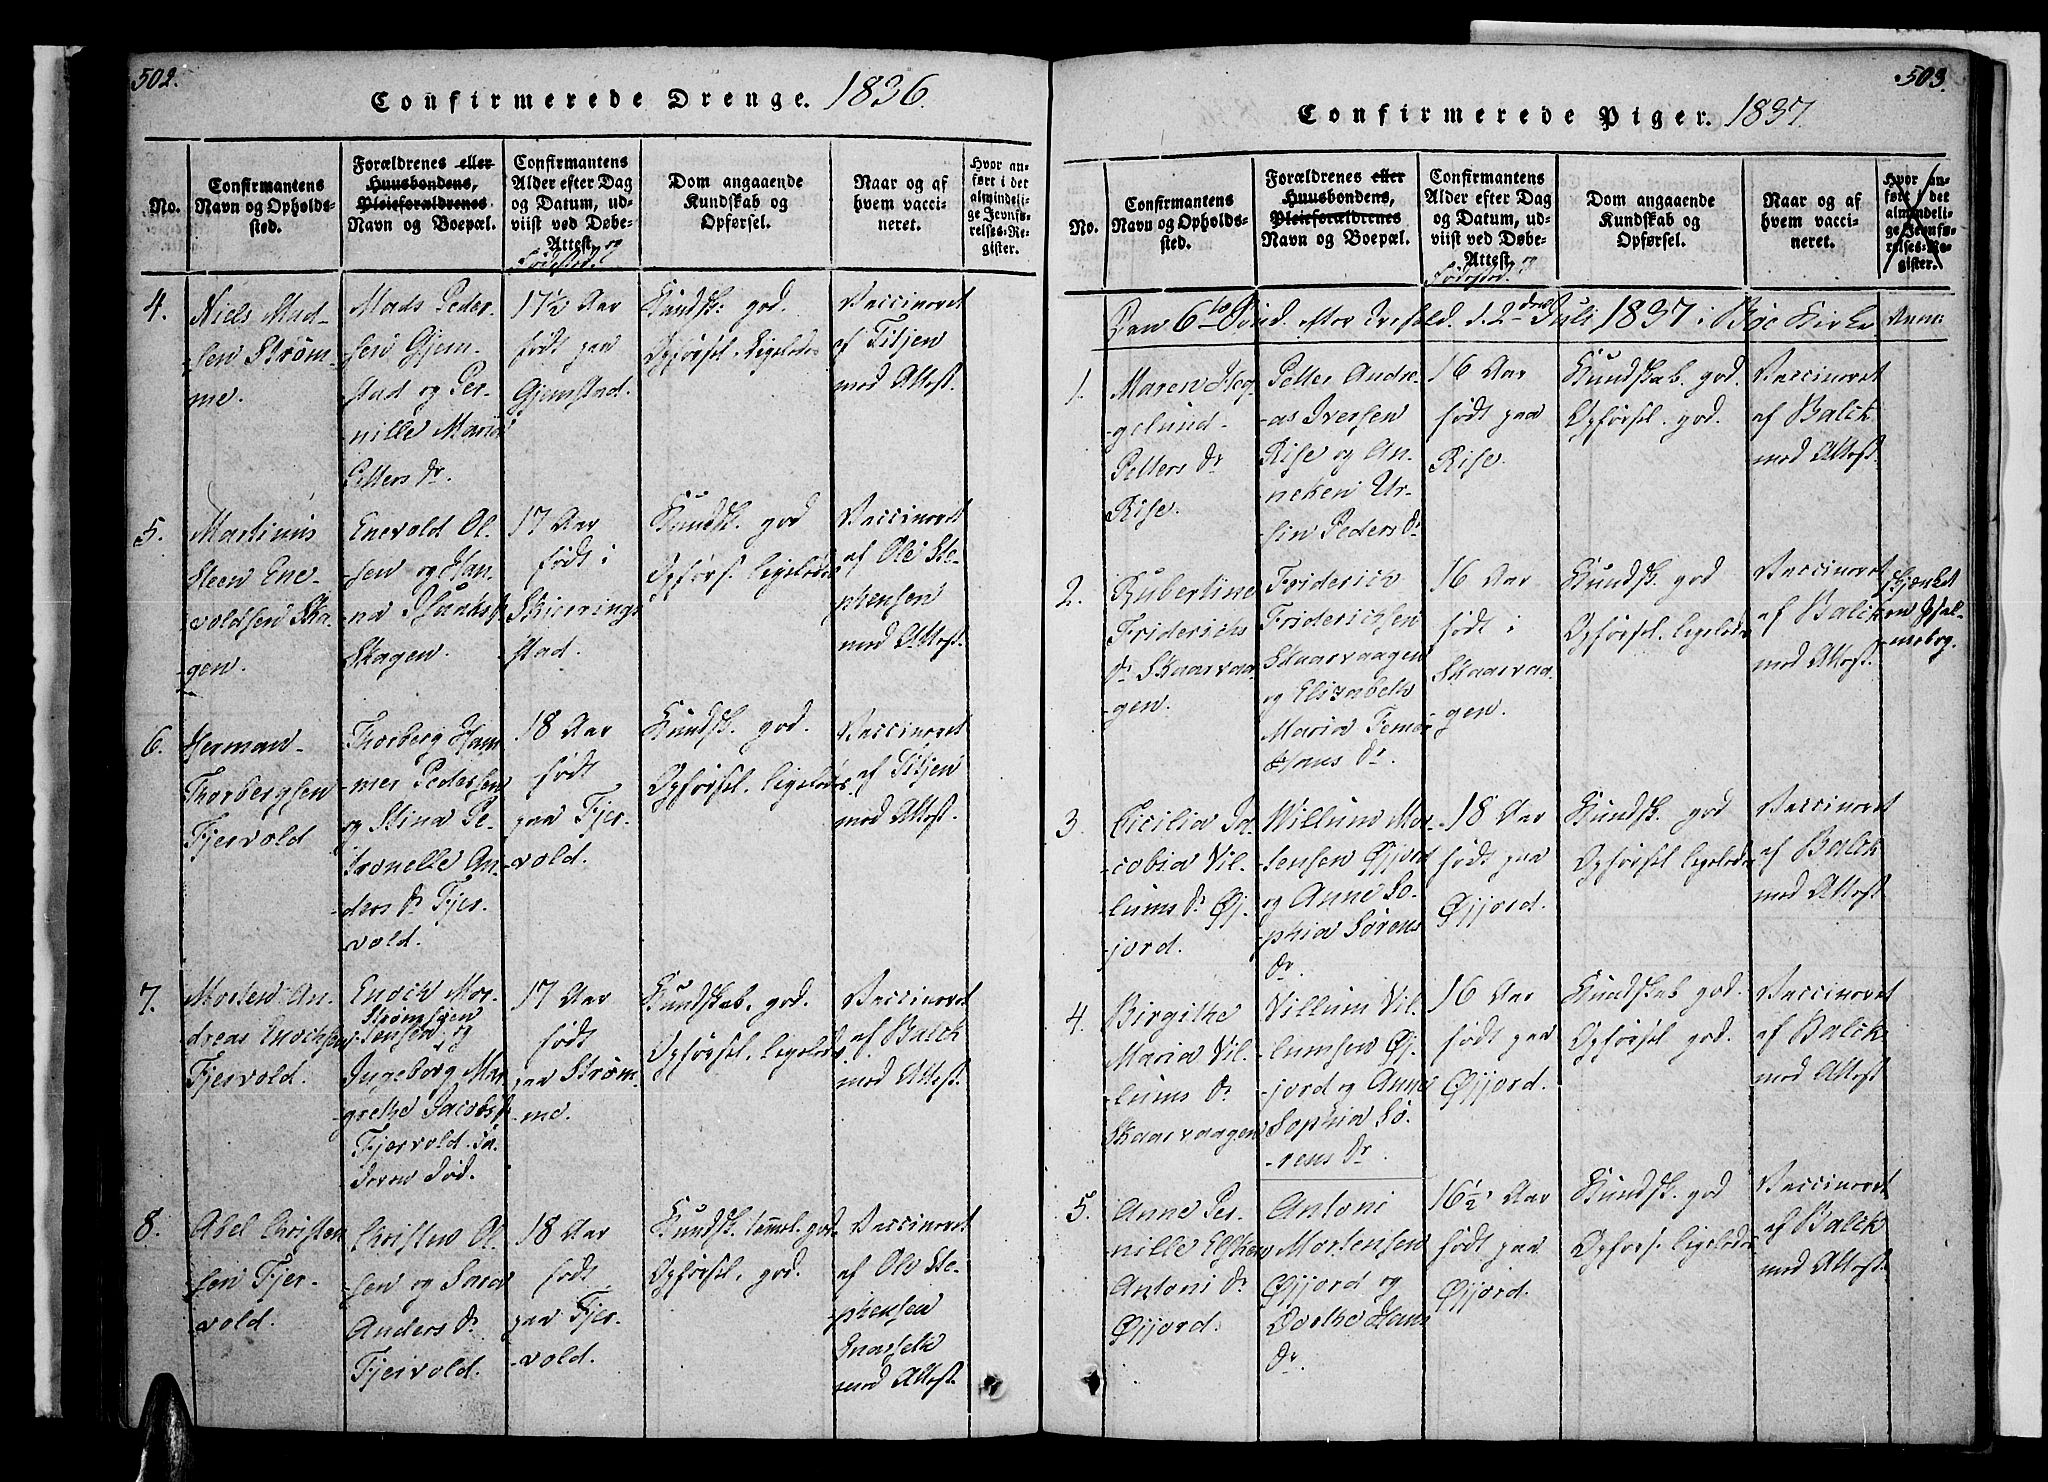 502.
Confirmerede Drenge. 1836.
No.
Confirmantens
Navn og Opholds-
sted.
Forældrenes eller
Huusbondens,
Pleieforældrenes
Navn og Boepæl.
Confirmantens
Alder efter Dag
og Datum, ud-
viist ved Døbe-
Attest. og
Fødested.
Dom angaaende
Kundskab og
Opførsel.
Naar og af
hvem vacci-
neret.
Hvor an-
ført i det
almindeli-
ge Jevnfø-
relses-Re-
gister.
4.
Niels Mad-
sen Strøm-
me.
Mads Peder-
sen Gjem-
stad og Per-
nille Maria
Petters Dr.
17½ Aar
født paa
Gjemstad.
Kundsk. god.
Opførsel ligeledes
Vaccineret
af Titjen
med Attest.
5.
Martinus
Steen Ene-
voldsen Ska-
gen.
Enevold Ol-
sen og Han-
na Isaaks
Skagen.
17 Aar
født i
Skierrings-
stad.
Kundsk. god
Opførs. ligeledes
Vaccineret
af Ole Ste-
phensen
med Attest.
6.
Herman
Thorbergsen
Fjervold
Thorberg Ham-
mer Pedersen
og Stina Pe-
tronelle An-
ders Dr. Fjer-
vold.
18 Aar
født
paa Fjer-
vold.
Kundsk. god.
Opførsel. ligeledes
Vaccineret
af Titjen
med Attest.
7.
Morten An-
dreas Enochsen
Fjervold.
Enoch Mor-
Strømsøen
tensen og
Ingeborg Mar-
grethe Jacobs Dr.
Fjervold. Fa-
deren død.
17 Aar
født
paa Strøm-
me.
Kundskab. god.
Opførsel. ligeledes
Vaccineret
af Balck
med Attest.
8.
Abel Christen
sen Fjer-
vold.
Christen Ol-
sen og Sara
Anders Dr.
Fjervold.
18 Aar
født
paa Fjer-
vold.
Kundsk. temmel. god
Opførsel. god.
Vaccineret
af Ole Ste-
phensen
med Attest.
503.
Confirmerede Piger. 1837.
No.
Confirmantens
Navn og Opholds-
sted.
Forældrenes eller
Huusbondens,
Pleieforældrenes
Navn og Boepæl.
Confirmantens
Alder efter Dag
og Datum, ud-
viist ved Døbe-
Attest. og
Fødested.
Dom angaaende
Kundskab og
Opførsel.
Naar og af
hvem vacci-
neret.
Hvor an-
ført i det
almindeli-
ge Jevnfø-
relses-Re-
gister.
Den 6te Sønd. efter Trefold. d. 2den Juli 1837 i Bøe Kirke
Anm:
1.
Maren Heg-
gelund
Petters Dr.
Rise.
Petter Andre-
as Iversen
Rise og An-
neken Ur-
sin Peders Dr.
16 Aar
født paa
Rise.
Kundskab. god.
Opførsel. god.
Vaccineret
af Balck
med Attest.
2.
Rubertine
Friderichs
Dr. Skaarvaa-
gen.
Friderich
Friderichsen
Skaarvaagen
og Elisabeth
Maria Femer
Hans Dr.
16 Aar
født i
Skaarvaa-
gen.
Kundsk. god
Opførsel. ligeledes
Vaccineret
af Balck
med Attest.
skjenket
en Psal-
mebog.
3.
Cicilia Ja-
cobia Vil-
lums Dr. Øj-
jord.
Willum Mor-
tensen Øjjord
og Anne So-
phia Sørens
Dr.
18 Aar
født paa
Øjjord.
Kundsk. god
Opførsel ligeledes
Vaccineret
af Balck
med Attest.
4.
Birgithe
Maria Vil-
lums Dr.
Skaarvaagen
Villum Vil-
lumsen Øj-
jord og Anne
Sophia Sø-
rens Dr.
16 Aar
født paa
Øjjord.
Kundskab god.
Opførsel god.
Vaccineret
af Balck
med Attest
5.
Anne Per-
nille Elsken
Antoni Dr.
Øjjord.
Antoni
Mortensen
Øjjord og
Dorthe Hans
Dr.
16½ Aar
født paa
Øjjord.
Kundsk. god
Opførs. ligeledes
Vaccineret
af Balck
med Attest.